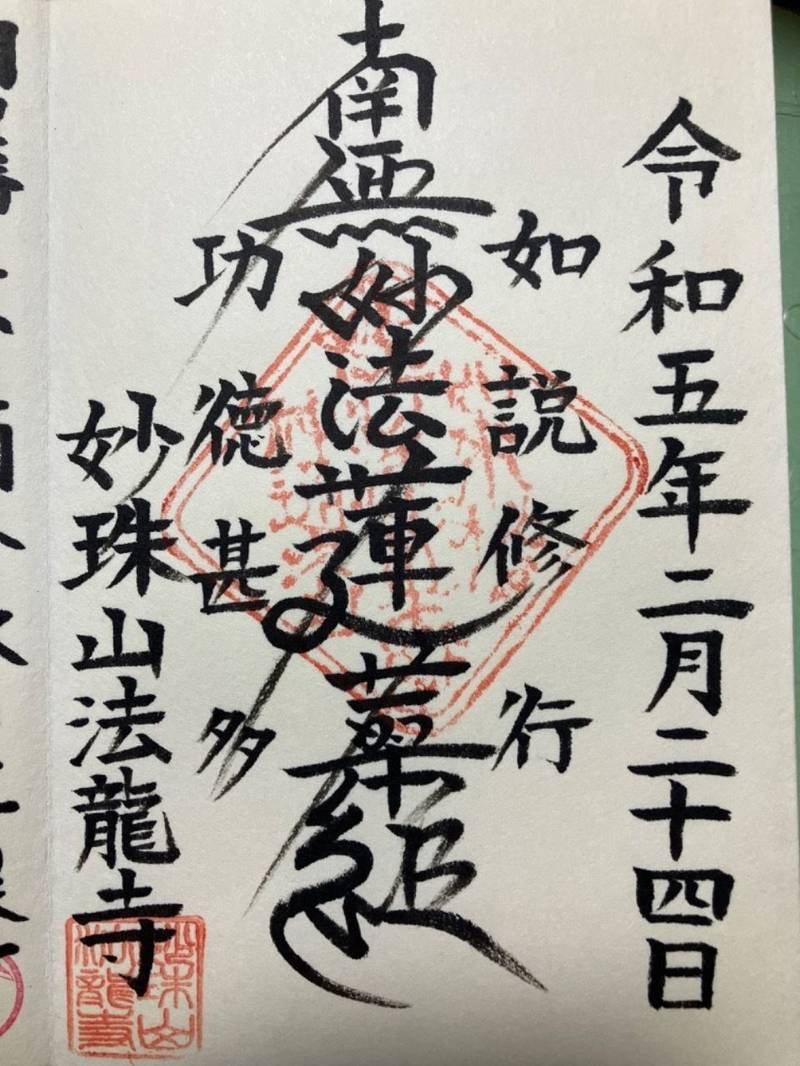 令和五年二月二十四日
如説修行
南無妙法蓮華経
功徳甚多
妙珠山法龍寺
妙珠山
法龍寺